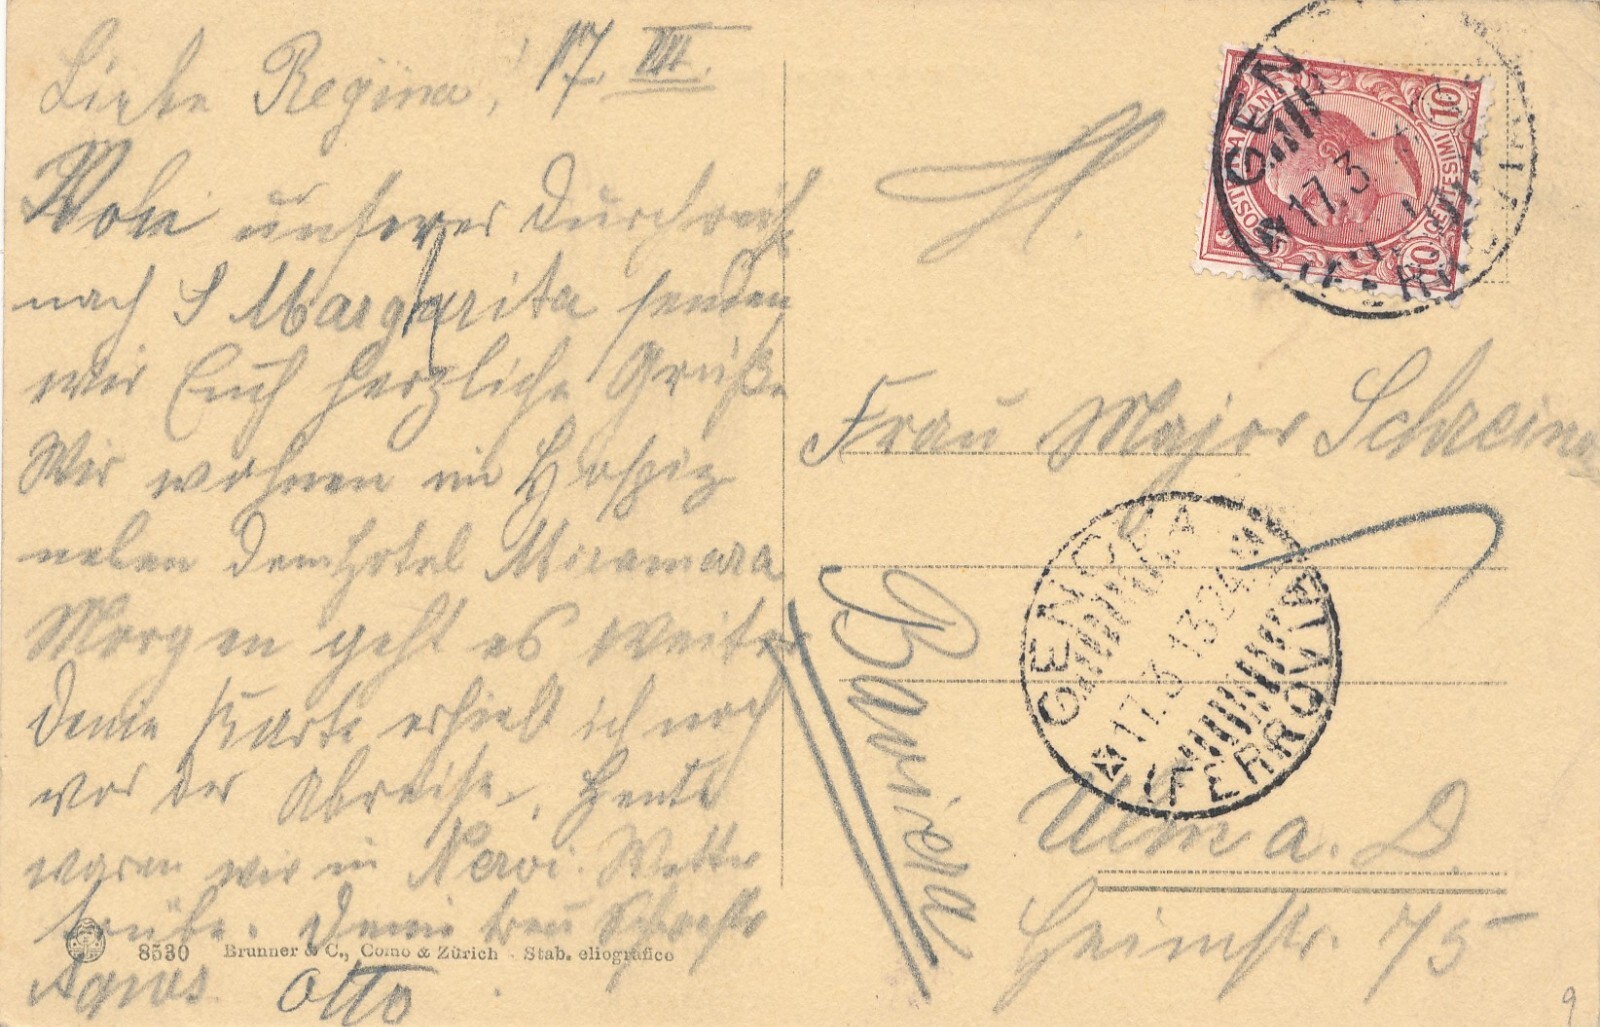 Liebe Regina, 17. III.
Von unserer Durchreise
nach S Margherita senden
wir Euch herzliche Grüße
Wir wohnen im Hospiz
neben dem Hotel Miramara
Morgen geht es weiter
Deine Karte erhielt ich noch
vor der Abreise. Heute
waren wir in Nervi. Wetter
trübe. Deine treu Schwester
Agnes Otto
8530 Brunner & C., Como & Zürich - Stab. eliografico
POSTE ITALIANE
CENTESIMI
10 10
GENOVA
17.3
(FERROVIA)
Frau Major Schreiner
GENOVA
17.3 13.24
(FERROVIA)
Baviera
Ulm a. D.
Heimstr. 75
9